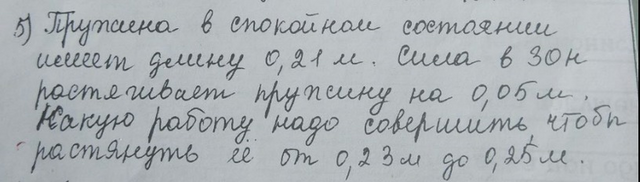 5) Пружина в спокойном состоянии
имеет длину 0,21 м. Сила в 30н
растягивает пружину на 0,05 м.
Какую работу надо совершить, чтобы
растянуть её от 0,23 м до 0,25 м.